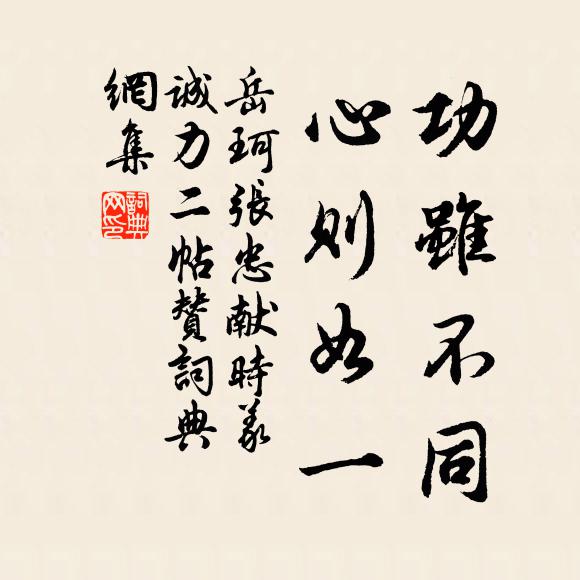 功雖不同
心則如一
岳珂張忠献時義
誠力二帖贊詞典
網集
詞典網印